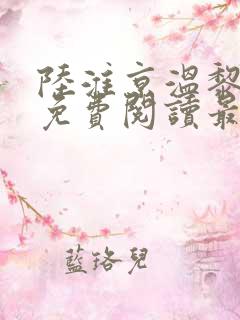 陸淮京溫黎
免費閱讀最
藍珞兒